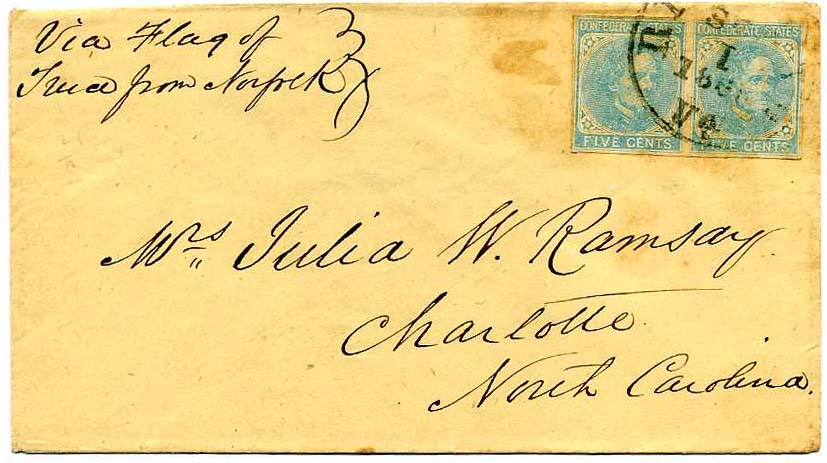 Via Flag of
Truce from Norfolk
CONFEDERATE STATES CONFEDERATE STATES
FIVE CENTS FIVE CENTS
Mrs Julia W. Ramsay.
Charlotte.
North Carolina.